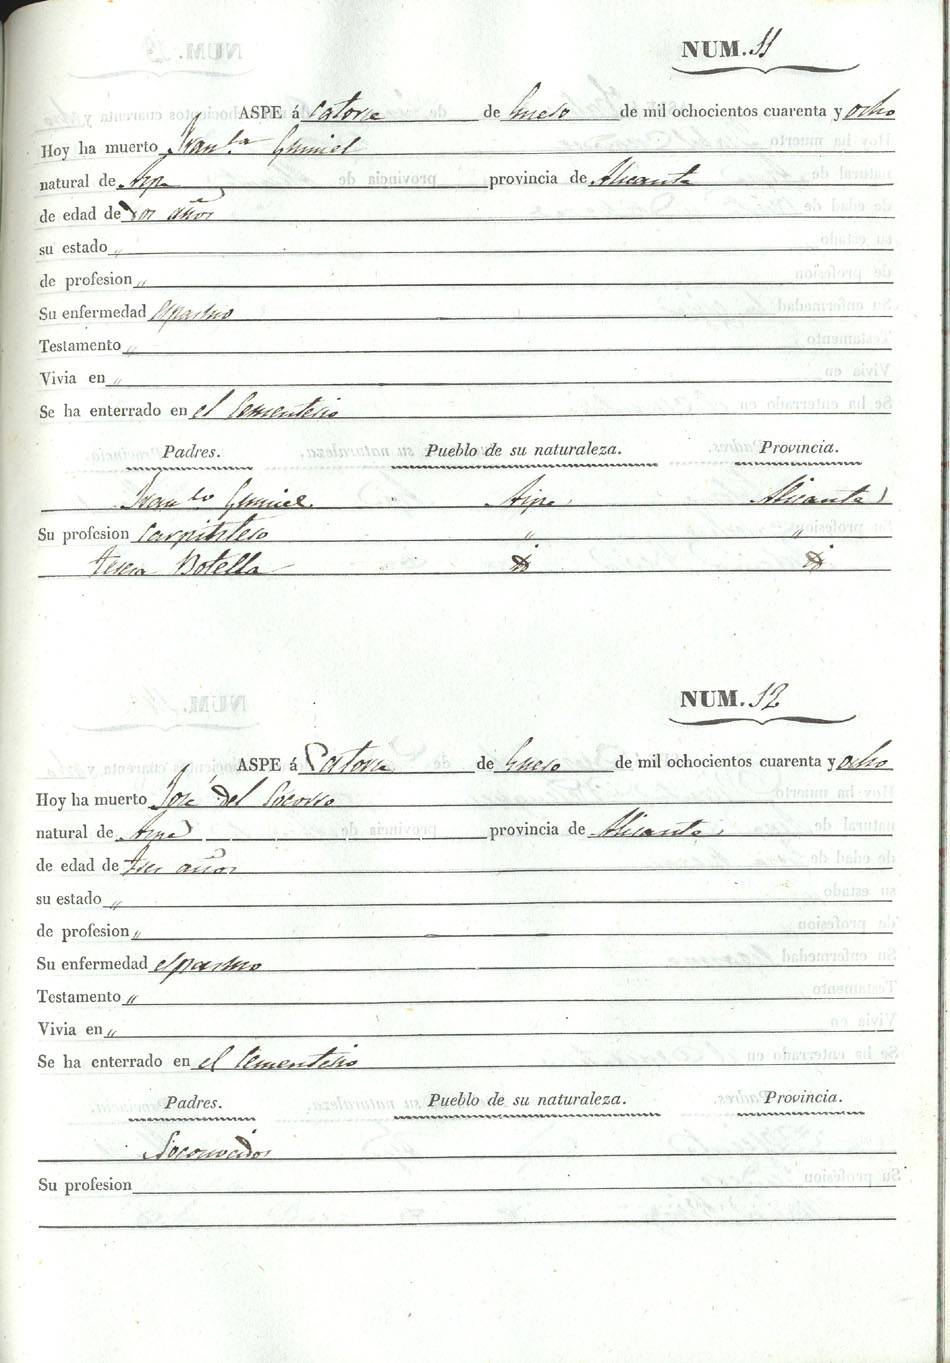 NUM. 11
ASPE á catorce de Enero de mil ochocientos cuarenta y ocho
Hoy ha muerto Fran.ca Gumiel
natural de Aspe provincia de Alicante
de edad de dos años
su estado "
de profesion "
Su enfermedad espasmo
Testamento "
Vivia en "
Se ha enterrado en el Cementerio
Padres. Pueblo de su naturaleza. Provincia.
Fran.co Gumiel Aspe Alicante
Su profesion Carpintero " "
Teresa Botella
NUM. 12
ASPE á Catorce de Enero de mil ochocientos cuarenta y ocho
Hoy ha muerto José del Socorro
natural de Aspe provincia de Alicante
de edad de tres años
su estado "
de profesion "
Su enfermedad espasmo
Testamento "
Vivia en "
Se ha enterrado en el Cementerio
Padres. Pueblo de su naturaleza. Provincia.
Su profesion